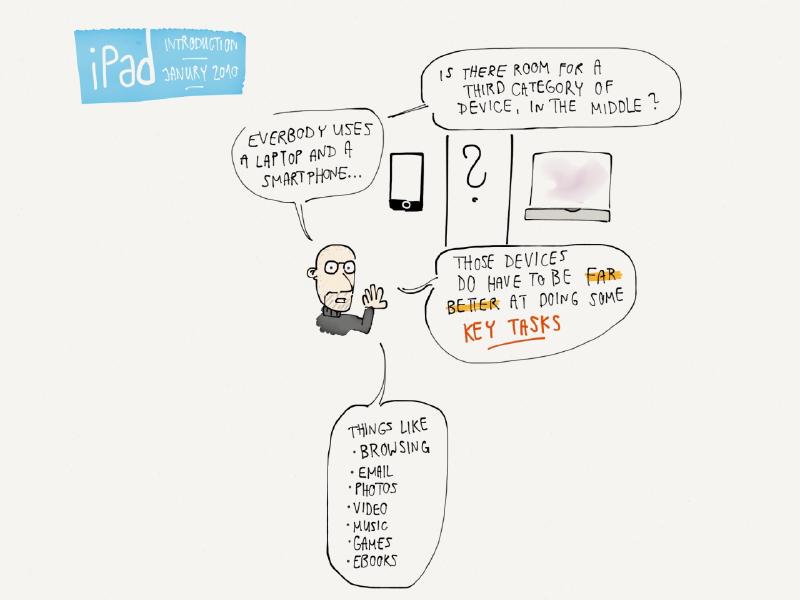 iPad
INTRODUCTION
JANURY 2010
EVERBODY USES
A LAPTOP AND A
SMARTPHONE...
IS THERE ROOM FOR A
THIRD CATEGORY OF
DEVICE, IN THE MIDDLE?
?
THOSE DEVICES
DO HAVE TO BE FAR
BETTER AT DOING SOME
KEY TASKS
THINGS LIKE
· BROWSING
· EMAIL
· PHOTOS
· VIDEO
· MUSIC
· GAMES
· EBOOKS